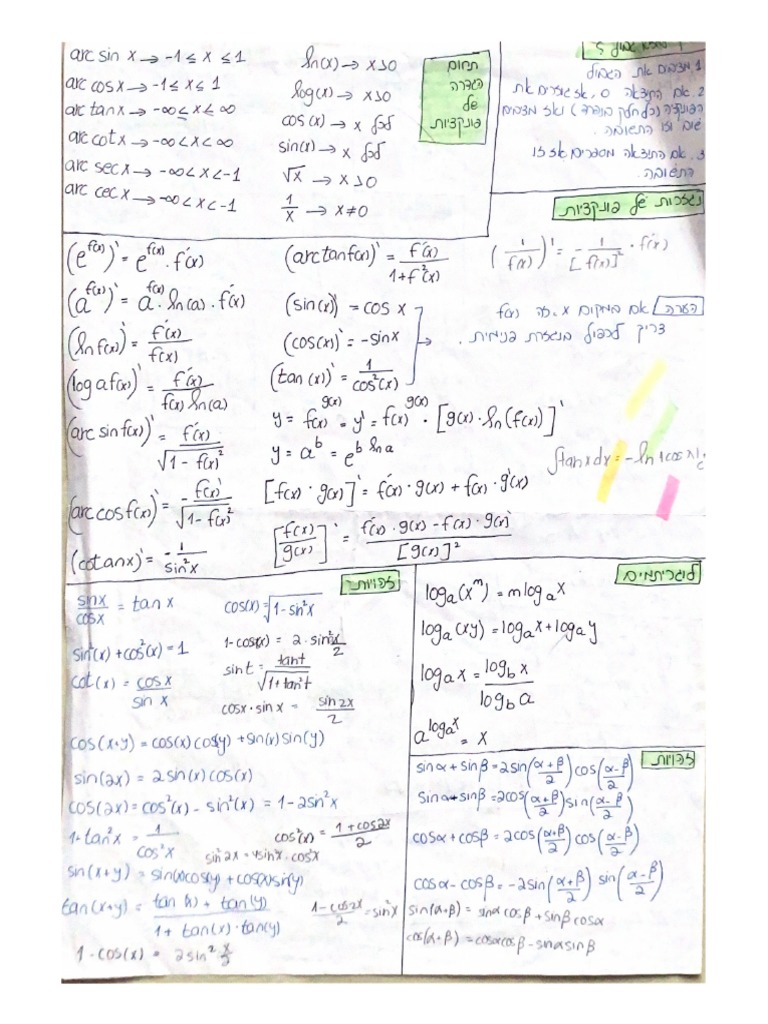 arc sin x → -1 ≤ x ≤ 1
arc cos x → -1 ≤ x ≤ 1
arc tan x → -∞ ≤ x ≤ ∞
arc cot x → -∞ < x < ∞
arc sec x → -∞ < x < -1
arc cec x → -∞ < x < -1
ln(x) → x>0
log(x) → x>0
cos(x) → x לכל
sin(x) → x לכל
√x → x>0
1/x → x≠0
תחום
הגדרה
של
פונקציות
1. מציבים את הגבול
2. אם התוצאה 0, אז גוזרים את
שוב וזו התשובה.
3. אם התוצאה מספרים אז זו
התשובה.
נגזרות של פונקציות
(e^f(x))' = e^f(x) · f'(x)
(a^f(x))' = a^f(x) · ln(a) · f'(x)
(ln f(x))' = f'(x) / f(x)
(log a f(x))' = f'(x) / f(x) ln(a)
(arc sin f(x))' = f'(x) / √(1 - f(x)²)
(arc cos f(x))' = - f(x)' / √(1 - f(x)²)
(cotan x)' = - 1 / sin²x
(arctan f(x))' = f'(x) / 1+f²(x)
(sin(x))' = cos x
(cos(x))' = -sin x
(tan(x))' = 1 / cos²(x)
y = f(x)^g(x) = y' = f(x)^g(x) · [g(x) · ln(f(x))]'
y = a^b = e^(b ln a)
[f(x) · g(x)]' = f'(x) · g(x) + f(x) · g'(x)
[f(x) / g(x)]' = f(x)' · g(x) - f(x) · g(x)' / [g(x)]²
(1 / f(x))' = - 1 / [f(x)]² · f'(x)
הערה אם במקום x, זה f(x)
צריך לכפול בנגזרת פנימית.
∫tan x dx = -ln|cos x|
זהויות
sin x / cos x = tan x
sin²(x) + cos²(x) = 1
cot(x) = cos x / sin x
cos(x) = √(1-sin²x)
1-cos(x) = 2·sin² x/2
sin t = tan t / √(1+tan²t)
cos x · sin x = sin 2x / 2
cos(x-y) = cos(x) cos(y) + sin(x) sin(y)
sin(2x) = 2 sin(x) cos(x)
cos(2x) = cos²(x) - sin²(x) = 1-2sin²x
1+tan²x = 1 / cos²x
cos²(x) = 1+cos2x / 2
sin²2x = 4sin²x · cos²x
sin(x+y) = sin(x)cos(y) + cos(x)sin(y)
tan(x+y) = tan(x) + tan(y) / 1 + tan(x) · tan(y)
1-cos2x / 2 = sin²x
1 - cos(x) = 2sin² x/2
לוגריתמים
log_a(x^m) = m log_a x
log_a(xy) = log_a x + log_a y
log_a x = log_b x / log_b a
a^(log_a x) = x
זהויות
sin α + sin β = 2sin(α+β / 2) cos(α-β / 2)
sin α - sin β = 2cos(α+β / 2) sin(α-β / 2)
cos α + cos β = 2cos(α+β / 2) cos(α-β / 2)
cos α - cos β = -2sin(α+β / 2) sin(α-β / 2)
sin(α+β) = sin α cos β + sin β cos α
cos(α+β) = cos α cos β - sin α sin β